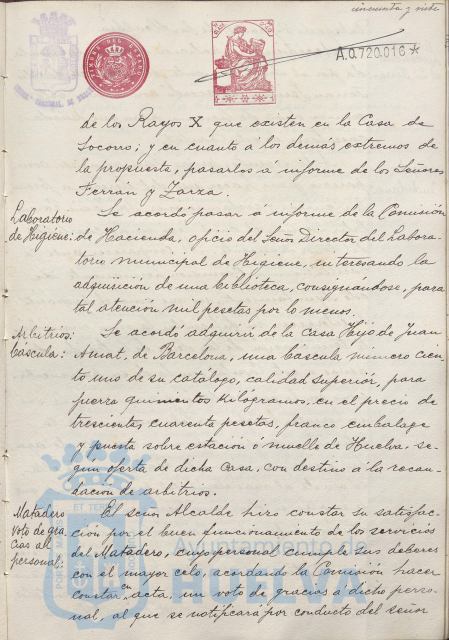 cincuenta y siete
TIMBRE DEL ESTADO
A.0.720.016*
de los Rayos X que existen en la Casa de
Socorro; y en cuanto á los demás extremos de
la propuesta, pasarlos á informe de los Señores
Terrán y Zarza.
Laboratorio
de Higiene:
Se acordó pasar á informe de la Comisión
de Hacienda, oficio del Señor Director del Labora-
torio municipal de Higiene, interesando la
adquisición de una biblioteca, consignándose, para
tal atención mil pesetas por lo menos.
Arbitrios:
báscula:
Se acordó adquirir de la casa Hijo de Juan
Amat, de Barcelona, una báscula número cien-
to uno de su catálogo, calidad superior, para
fuerza quinientos kilogramos, en el precio de
trescienta, cuarenta pesetas, franco embalage
y puesta sobre estación ó muelle de Huelva, se-
gún oferta de dicha casa, con destino á la recau-
dación de arbitrios.
Matadero
voto de gra-
cias al
personal:
El señor Alcalde hizo constar su satisfac-
ción por el buen funcionamiento de los servicios
del Matadero, cuyo personal cumple sus deberes
con el mayor celo, acordando la Comisión hacer
constar en acta, un voto de gracias á dicho perso-
nal, al que se notificará por conducto del señor
Ayuntamiento
HUELVA